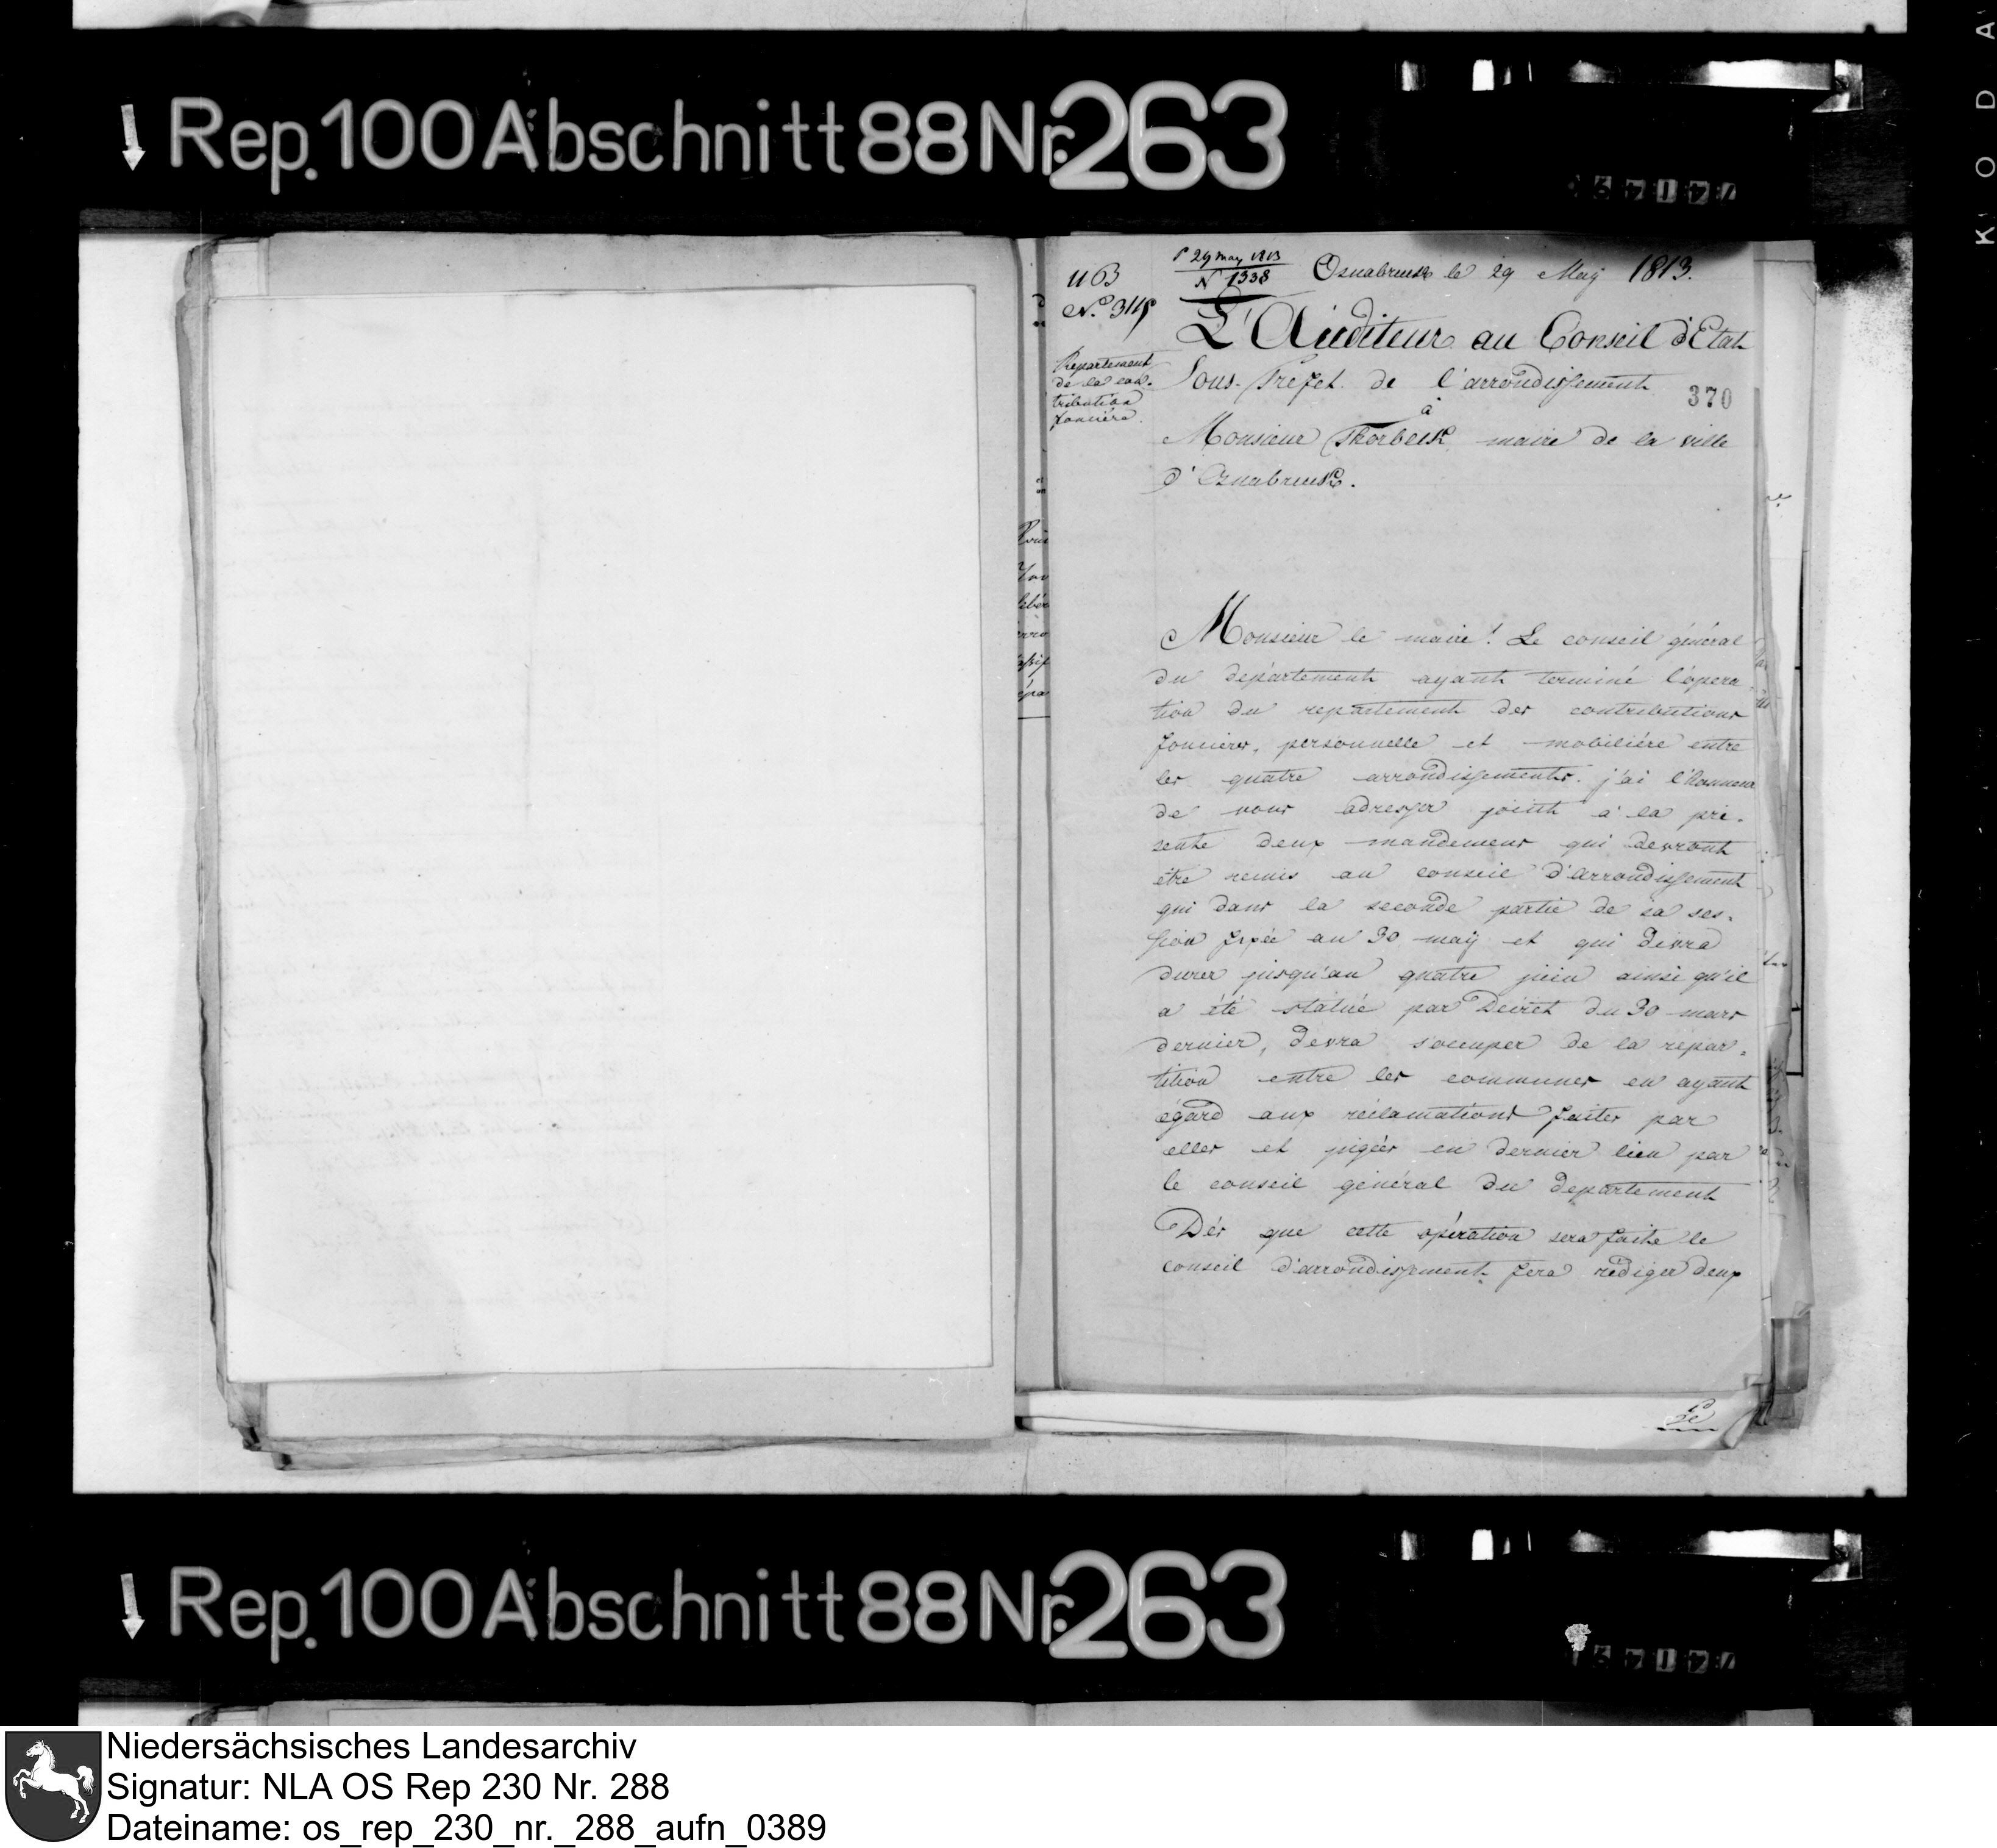 Rep. 100 Abschnitt 88 Nr. 263
KODA
N° 1338
Osnabruck le 29 May 1813.
L'Auditeur au Conseil d'Etat
Sous-Préfet de l'arrondissement
370
à
Monsieur Thorbeck maire de la ville
d'Osnabruck.
Repartement
de la con-
tribution
foncière.
Monsieur le maire! Le conseil général
du département ayant terminé l'opera-
tion du repartement des contributions
foncières, personnelle et mobilière entre
les quatre arrondissements. j'ai l'honneur
de vous adresser joint à la pré-
sente deux mandemens qui devront
être remis au conseil d'arrondissement
qui dans la seconde partie de sa ses-
sion fixée au 30 may et qui devra
durer jusqu'au quatre juin ainsi qu'il
a été statué par Décret du 30 mars
dernier, devra s'occuper de la repar-
tition entre les communes en ayant
égard aux réclamations faites par
elles et jugées en dernier lieu par
le conseil général du departement
Dès que cette opération sera faite le
conseil d'arrondissement fera rédiger deux
Rep. 100 Abschnitt 88 Nr. 263
Niedersächsisches Landesarchiv
Signatur: NLA OS Rep 230 Nr. 288
Dateiname: os_rep_230_nr._288_aufn_0389